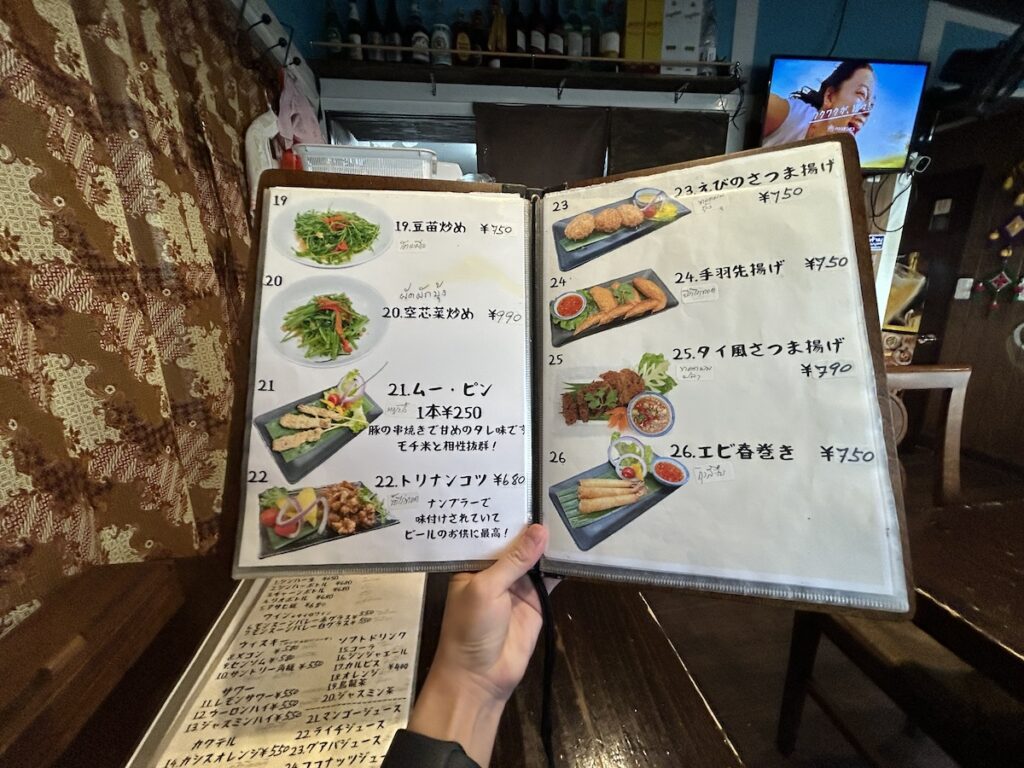 19
19.豆苗炒め ¥750
20
ผัดผักบุ้ง
20.空芯菜炒め ¥990
21
21.ムー・ピン
1本¥250
豚の串焼きで甘めのタレ味です
モチ米と相性抜群!
22
22.トリナンコツ ¥680
ナンプラーで
味付けされていて
ビールのお供に最高!
23
23.えびのさつま揚げ
¥750
24
24.手羽先揚げ ¥750
25
25.タイ風さつま揚げ
¥790
26
26.エビ春巻き ¥750
5.アサヒ瓶 ¥680
ウイスキー
ソフトドリンク
8.メコン ¥580
9.センソム ¥580
10.サントリー角瓶 ¥550
15.コーラ
16.ジンジャエール
17.カルピス ¥400
18.オレンジ
19.烏龍茶
20.ジャスミン茶
サワー
11.レモンサワー ¥550
12.ウーロンハイ ¥550
13.ジャスミンハイ ¥550
21.マンゴージュース
22.ライチジュース
カクテル
14.カシスオレンジ ¥550
23.グアバジュース
24.ココナッツジュ